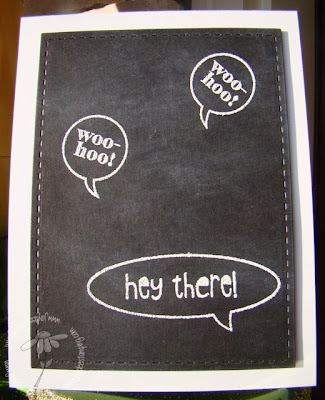 woo-
hoo!
woo-
hoo!
hey there!